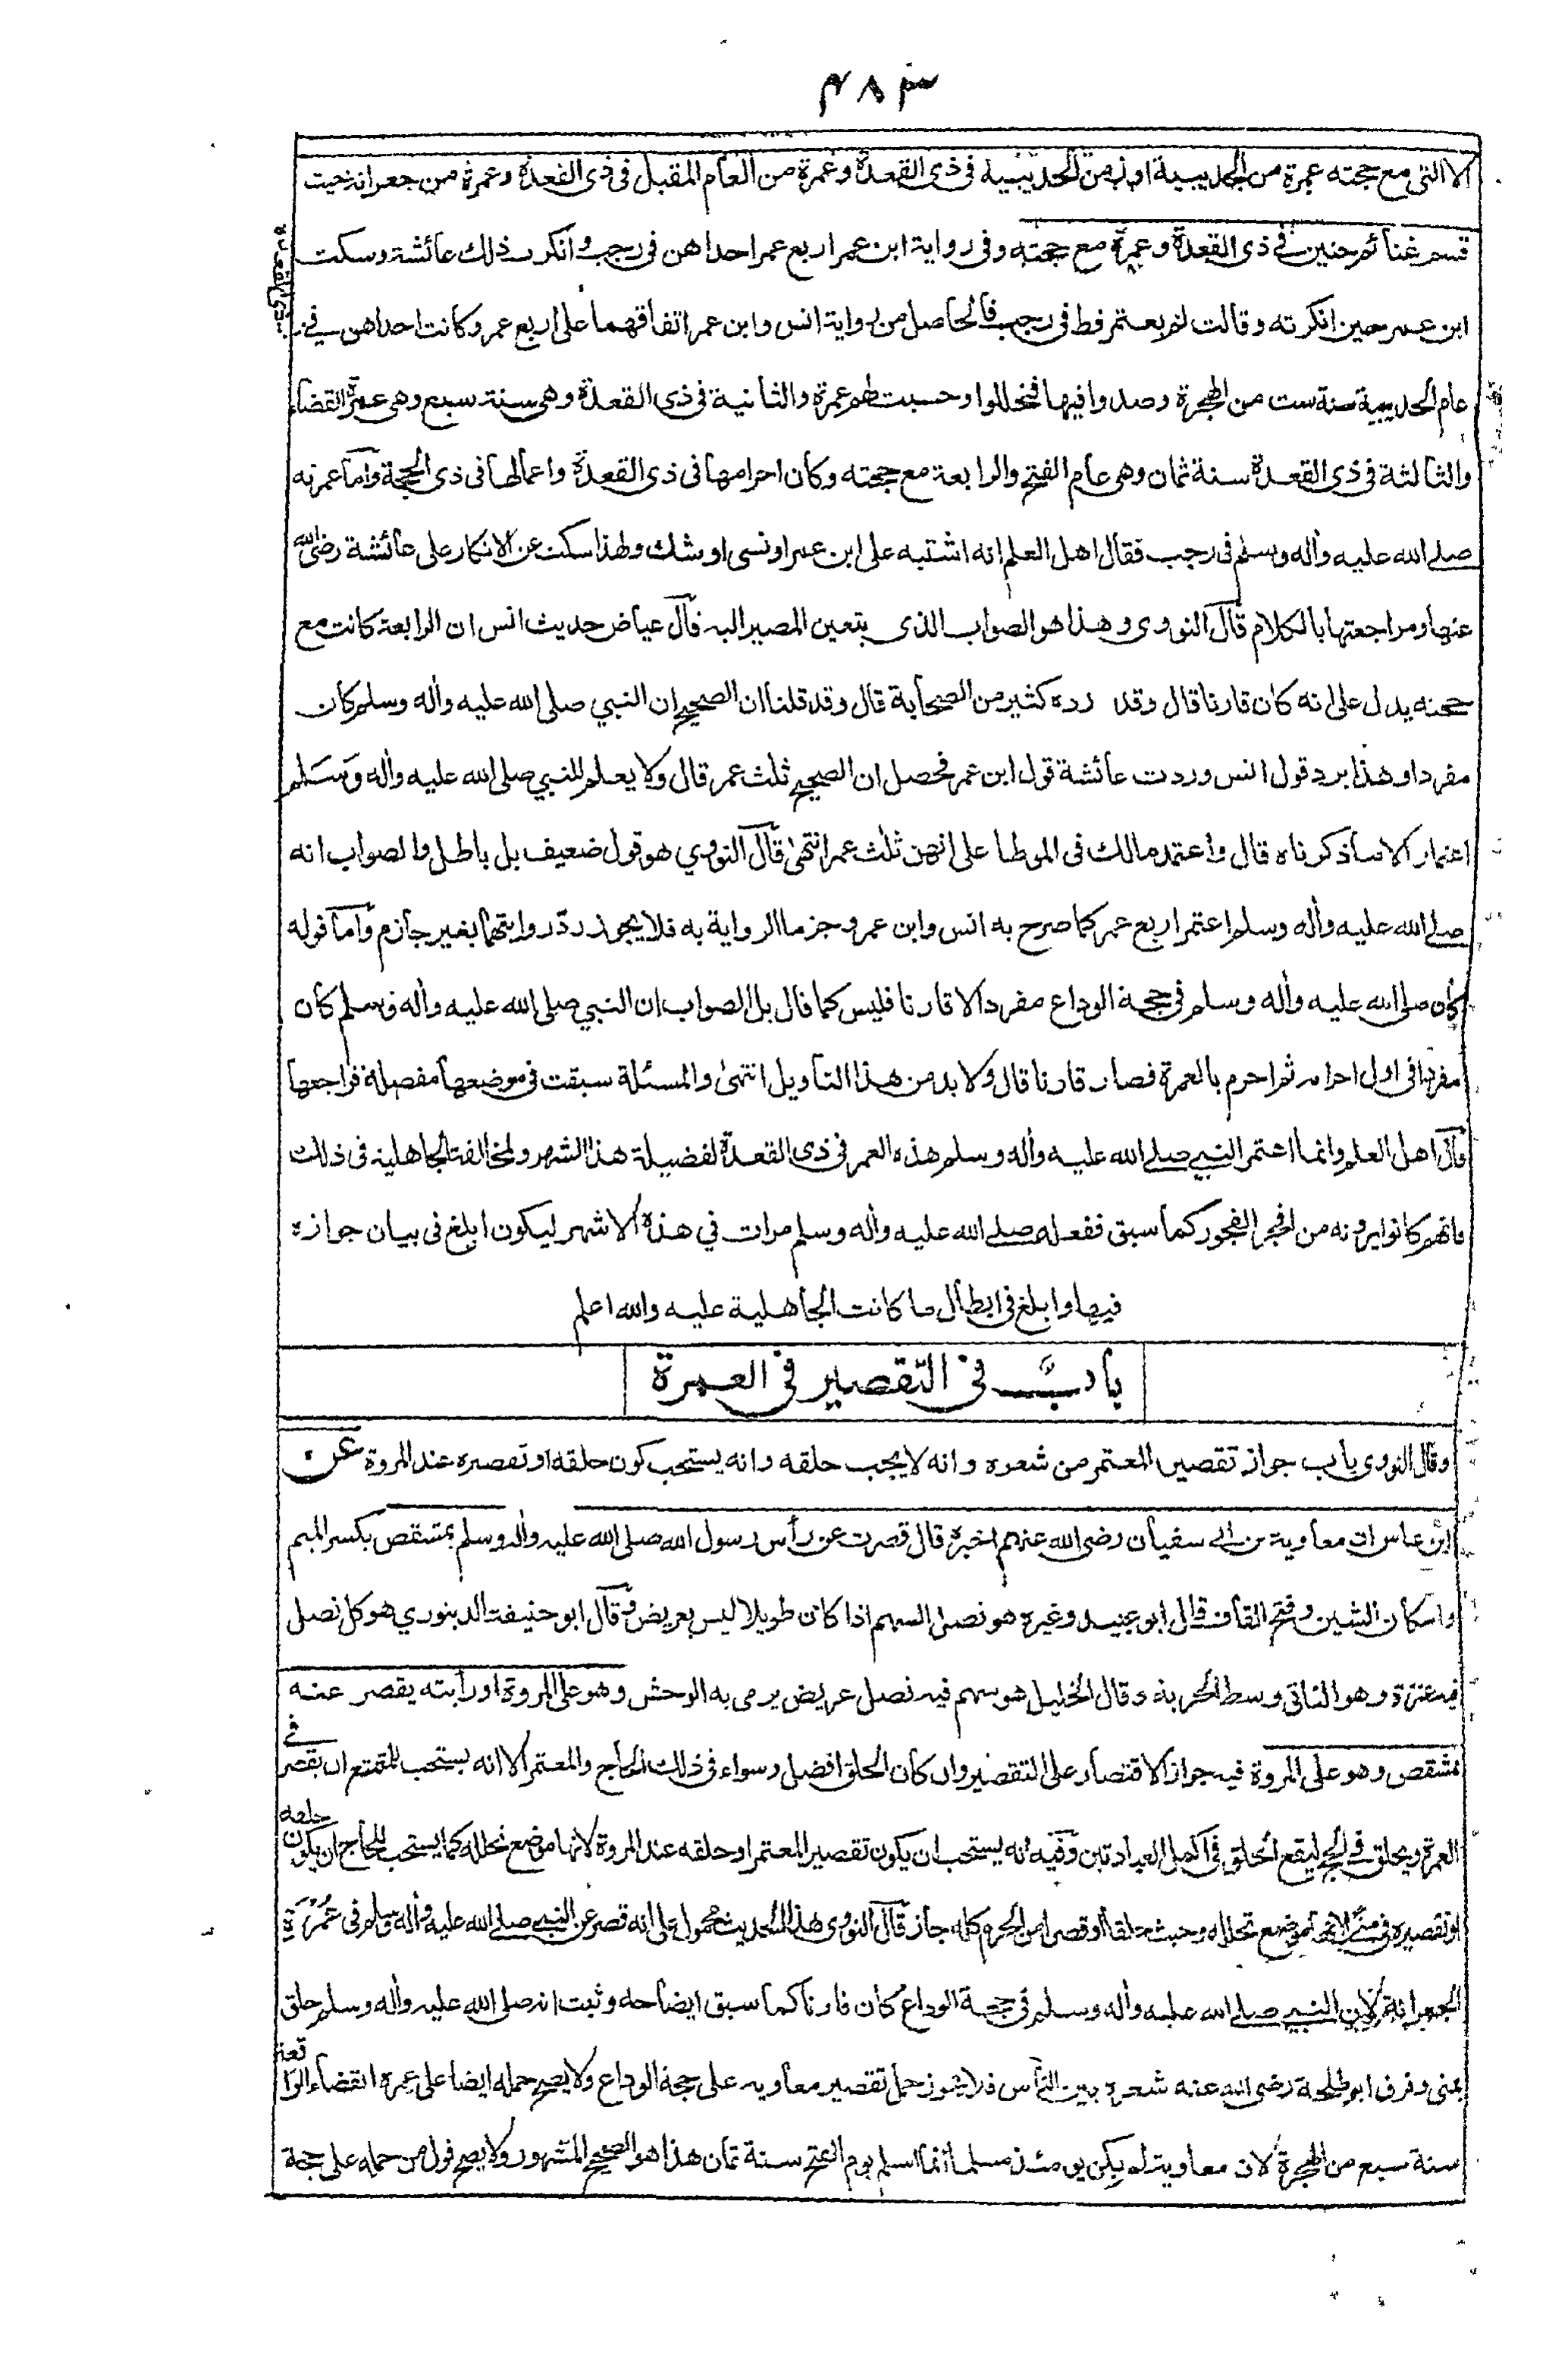 ٤٨٣
الا التي مع حجته عمرة من الحديبية او زمن الحديبية في ذي القعدة وعمرة من العام المقبل في ذي القعدة وعمرة من جعرانة حيث
قسم غنائم حنين في ذي القعدة وعمرة مع حجته وفي رواية ابن عمر اربع عمر احداهن في رجب وانكرت ذلك عائشة وسكت
ابن عمر حين انكرته وقالت لم يعتمر قط في رجب فالحاصل من رواية انس وابن عمر اتفاقهما على اربع عمر وكانت احداهن في
ذي القعدة
عام الحديبية سنة ست من الهجرة وصدوا فيها فتحللوا وحسبت لهم عمرة والثانية في ذي القعدة وهي سنة سبع وهي عمرة القضاء
والثالثة في ذي القعدة سنة ثمان وهي عام الفتح والرابعة مع حجته وكان احرامها في ذي القعدة واعمالها في ذي الحجة واما عمرته
صلى الله عليه وأله وسلم في رجب فقال اهل العلم انه اشتبه على ابن عمر او نسي او شك ولهذا سكت عن الانكار على عائشة رضي الله
عنها ومراجعتها بالكلام قال النووي وهذا هو الصواب الذي يتعين المصير اليه قال عياض حديث انس ان الرابعة كانت مع
حجته يدل على انه كان قارنا قال وقد رده كثير من الصحابة قال وقد قلنا ان الصحيح ان النبي صلى الله عليه وأله وسلم كان
مفردا وهذا يرد قول انس وردت عائشة قول ابن عمر فحصل ان الصحيح ثلث عمر قال ولا يعلم للنبي صلى الله عليه وأله وسلم
اعتمار الا ما ذكرناه قال واعتمد مالك في الموطا على انهن ثلث عمر انتهى قال النووي هو قول ضعيف بل باطل والصواب انه
صلى الله عليه وأله وسلم اعتمر اربع عمر كما صرح به انس وابن عمر وجزما الرواية به فلا يجوز رد روايتهما بغير جازم واما قوله
كان صلى الله عليه وأله وسلم في حجة الوداع مفردا لا قارنا فليس كما قال بل الصواب ان النبي صلى الله عليه وأله وسلم كان
مفردا في اول احرامه ثم احرم بالعمرة فصار قارنا قال ولا بد من هذا التاويل انتهى والمسئلة سبقت في موضعها مفصلة فراجعها
قال اهل العلم وانما اعتمر النبي صلى الله عليه وأله وسلم هذه العمر في ذي القعدة لفضيلة هذا الشهر ولمخالفة الجاهلية في ذلك
فانهم كانوا يرونه من افجر الفجور كما سبق ففعله صلى الله عليه وأله وسلم مرات في هذه الاشهر ليكون ابلغ في بيان جوازه
فيها وابلغ في ابطال ما كانت الجاهلية عليه والله اعلم
باب في التقصير في العمرة
وقال النووي باب جواز تقصير المعتمر من شعره وانه لا يجب حلقه وانه يستحب كون حلقه او تقصيره عند المروة عن
ابن عباس ان معاوية بن ابي سفيان رضي الله عنهم اخبره قال قصرت عن رأس رسول الله صلى الله عليه وأله وسلم بمشقص بكسر الميم
واسكان الشين وفتح القاف قال ابو عبيد وغيره هو نصل السهم اذا كان طويلا ليس بعريض وقال ابو حنيفة الدينوري هو كل نصل
فيه عنزة وهو الناتي وسط الحربة وقال الخليل هو سهم فيه نصل عريض يرمى به الوحش وهو على المروة او رأيته يقصر عنه
بمشقص وهو على المروة فيه جواز الاقتصار على التقصير وان كان الحلق افضل وسواء في ذلك الحاج والمعتمر الا انه يستحب للمتمتع ان يقصر في
العمرة ويحلق في الحج ليقع الحلق في اكمل العبادتين وفيه انه يستحب ان يكون تقصير المعتمر او حلقه عند المروة لانها موضع تحلله كما يستحب للحاج ان يكون حلقه
او تقصيره في منى لانها موضع تحلله وحيث حلقا او قصرا من الحرم كله جاز قال النووي هذا الحديث محمول على انه قصر عن النبي صلى الله عليه وأله وسلم في عمرة
الجعرانة لان النبي صلى الله عليه وأله وسلم في حجة الوداع كان قارنا كما سبق ايضاحه وثبت انه صلى الله عليه وأله وسلم حلق
بمنى وفرق ابو طلحة رضي الله عنه شعره بين الناس فلا يجوز حمل تقصير معاوية على حجة الوداع ولا يصح حمله ايضا على عمرة القضاء الواقعة
سنة سبع من الهجرة لان معاوية لم يكن يومئذ مسلما انما اسلم يوم الفتح سنة ثمان هذا هو الصحيح المشهور ولا يصح قول من حمله على حجة